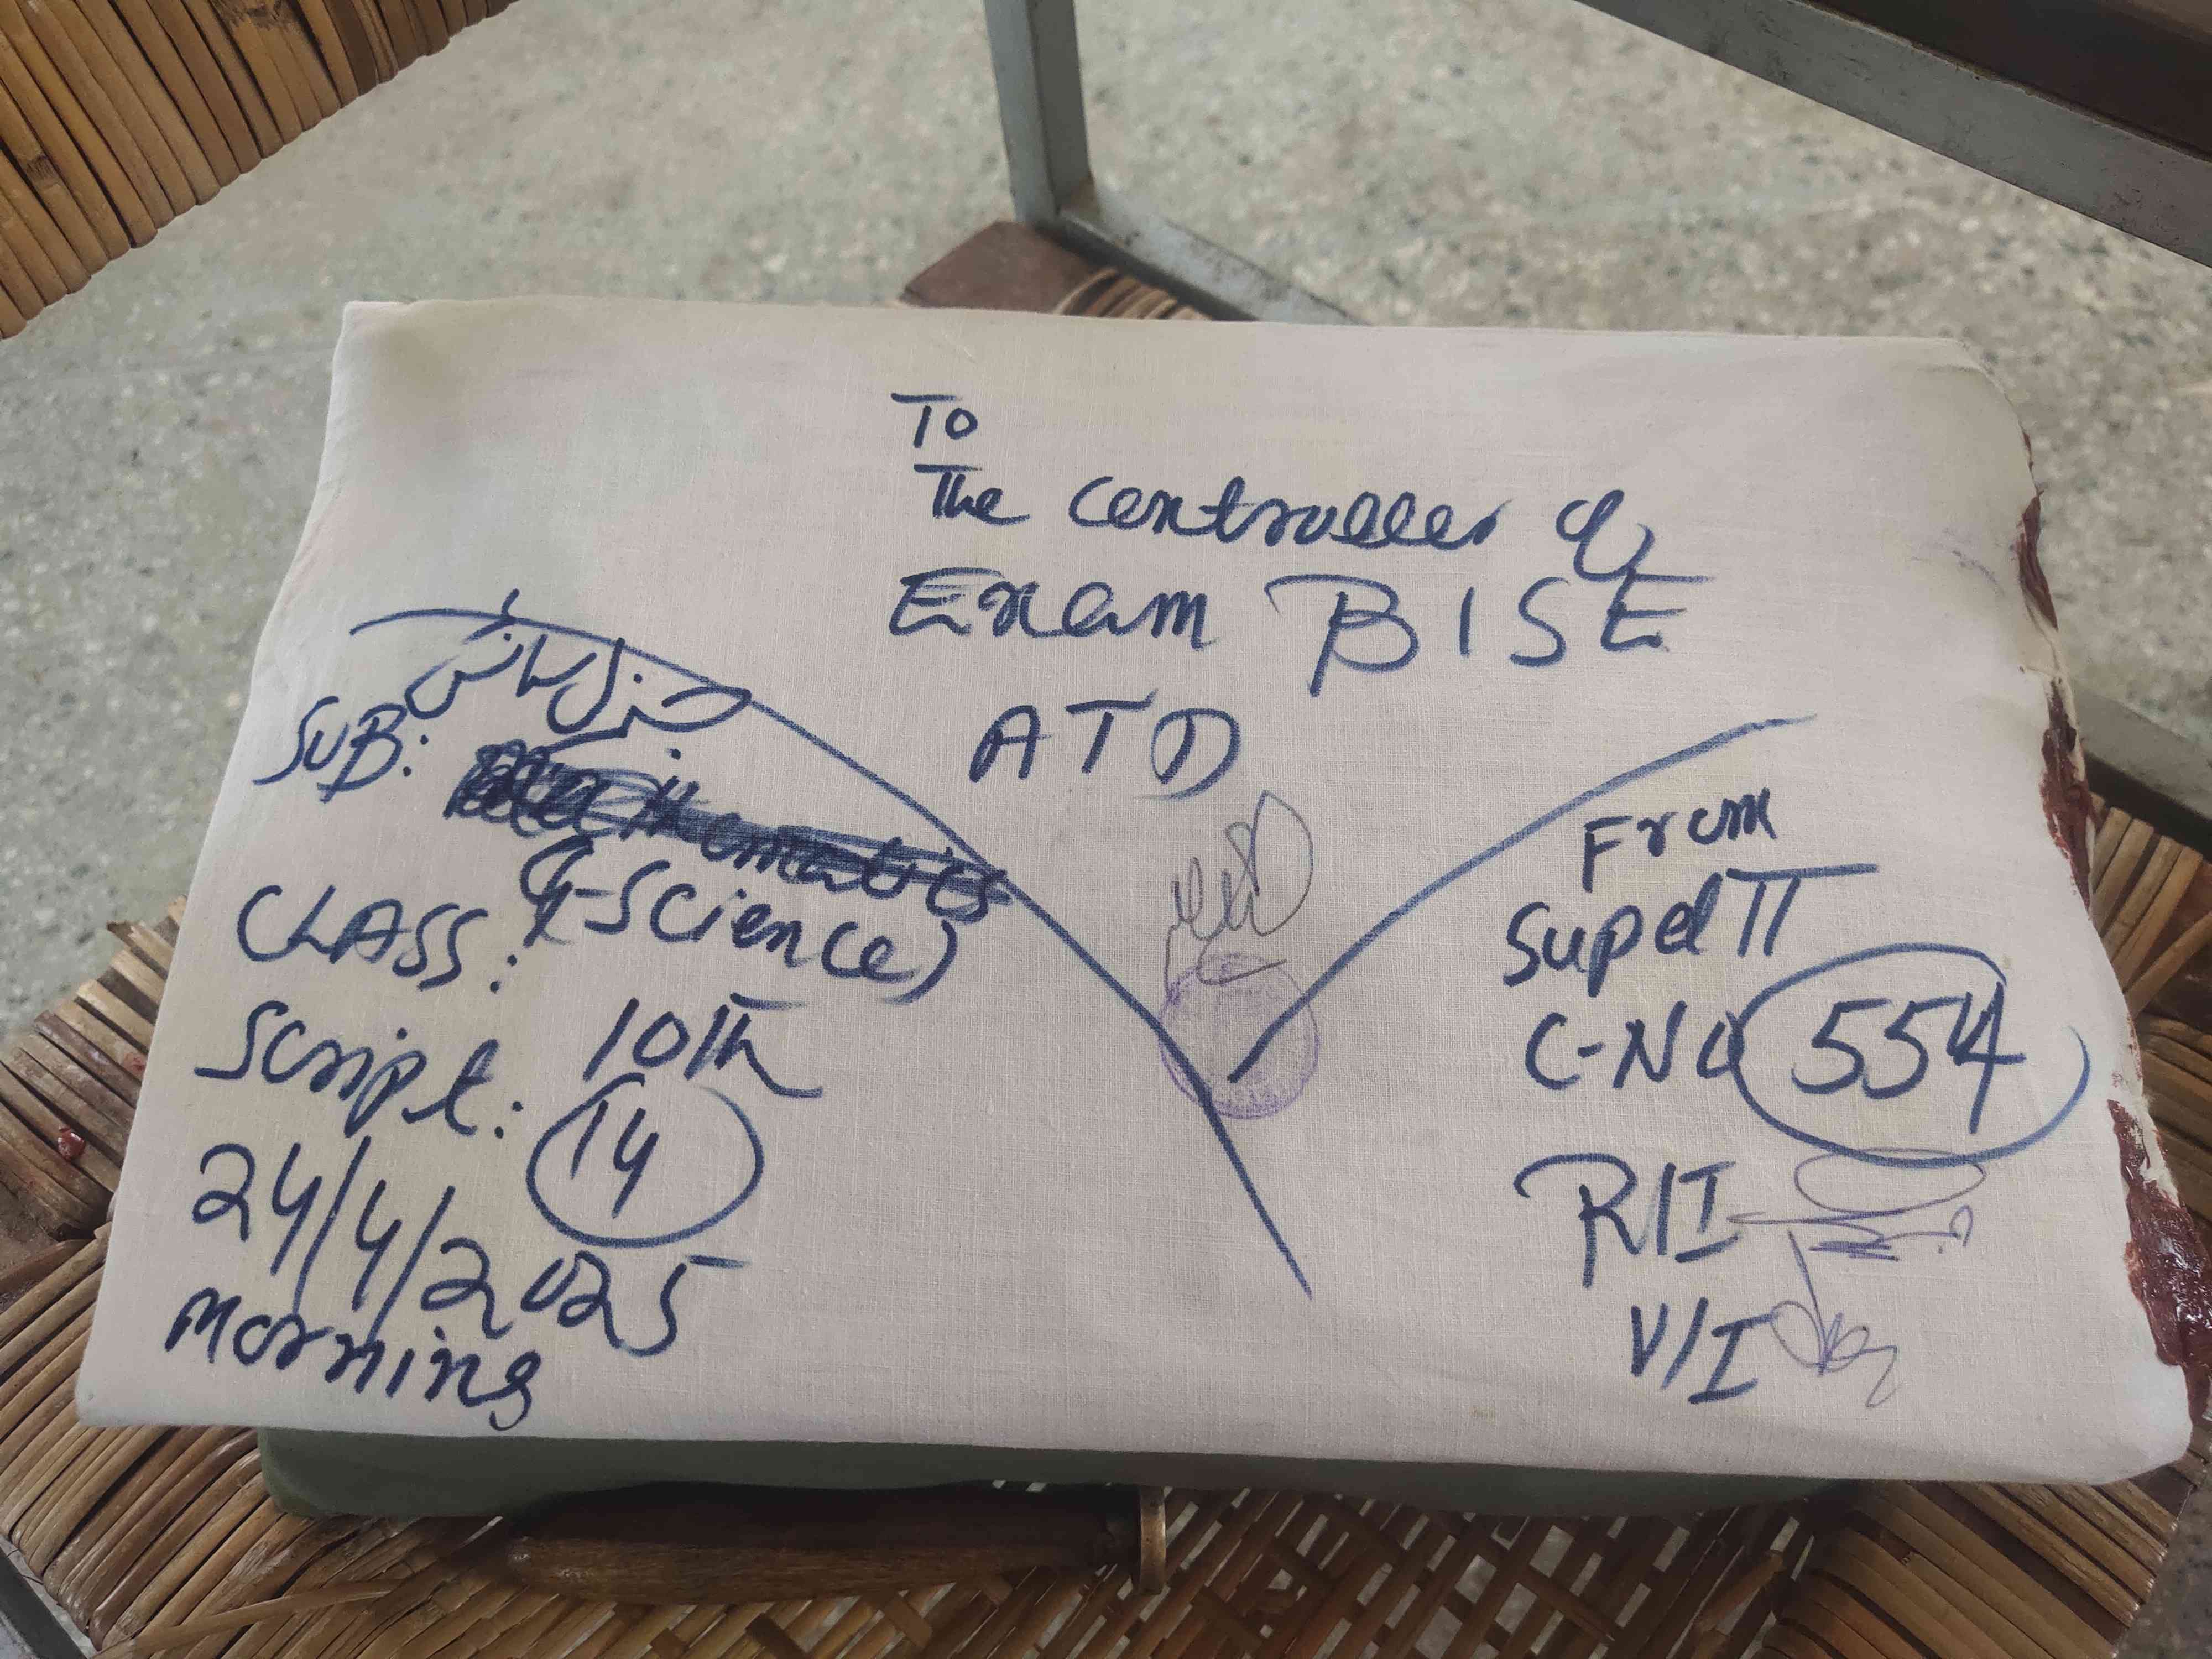 To
The Controller of
Exam BISE
ATD
SUB:
Mathematics
(G-Science)
CLASS: 10th
Script: 14
24/4/2025
Morning
From
Supdtt
C-No 554
R/I
V/I